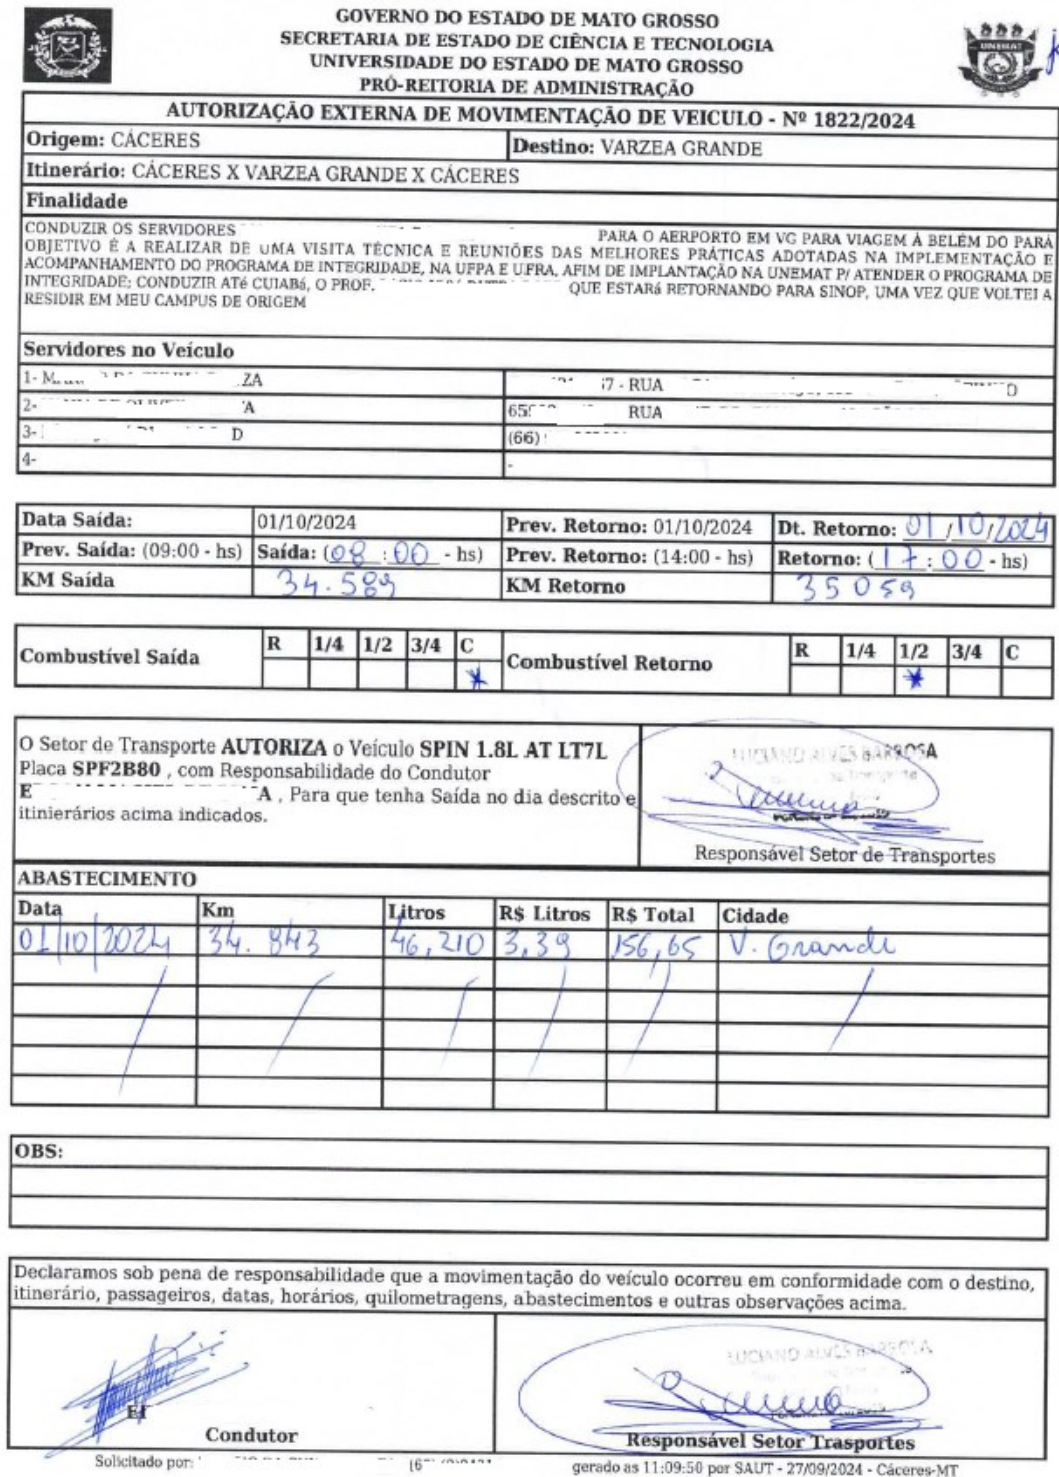 GOVERNO DO ESTADO DE MATO GROSSO
SECRETARIA DE ESTADO DE CIÊNCIA E TECNOLOGIA
UNIVERSIDADE DO ESTADO DE MATO GROSSO
PRÓ-REITORIA DE ADMINISTRAÇÃO
UNEMAT
AUTORIZAÇÃO EXTERNA DE MOVIMENTAÇÃO DE VEICULO - Nº 1822/2024
Origem: CÁCERES Destino: VARZEA GRANDE
Itinerário: CÁCERES X VARZEA GRANDE X CÁCERES
Finalidade
CONDUZIR OS SERVIDORES PARA O AERPORTO EM VG PARA VIAGEM À BELÉM DO PARÁ
OBJETIVO É A REALIZAR DE UMA VISITA TÉCNICA E REUNIÕES DAS MELHORES PRÁTICAS ADOTADAS NA IMPLEMENTAÇÃO E
ACOMPANHAMENTO DO PROGRAMA DE INTEGRIDADE, NA UFPA E UFRA, AFIM DE IMPLANTAÇÃO NA UNEMAT P/ ATENDER O PROGRAMA DE
INTEGRIDADE; CONDUZIR ATé CUIABá, O PROF. QUE ESTARá RETORNANDO PARA SINOP, UMA VEZ QUE VOLTEI A
RESIDIR EM MEU CAMPUS DE ORIGEM
Servidores no Veículo
1- M ZA 7 - RUA O
2- A 659 RUA
3- D (66)
4- -
Data Saída: 01/10/2024 Prev. Retorno: 01/10/2024 Dt. Retorno: 01/10/2024
Prev. Saída: (09:00 - hs) Saída: (08:00 - hs) Prev. Retorno: (14:00 - hs) Retorno: (17:00 - hs)
KM Saída 34.589 KM Retorno 35059
Combustível Saída R 1/4 1/2 3/4 C Combustível Retorno R 1/4 1/2 3/4 C
O Setor de Transporte AUTORIZA o Veículo SPIN 1.8L AT LT7L
Placa SPF2B80 , com Responsabilidade do Condutor
E A , Para que tenha Saída no dia descrito e
itinierários acima indicados.
LUCIANO ALVES BARBOSA
Responsável Setor de Transportes
ABASTECIMENTO
Data Km Litros R$ Litros R$ Total Cidade
01/10/2024 34.843 46,210 3,39 156,65 V. Grande
OBS:
Declaramos sob pena de responsabilidade que a movimentação do veículo ocorreu em conformidade com o destino,
itinerário, passageiros, datas, horários, quilometragens, abastecimentos e outras observações acima.
LUCIANO ALVES BARBOSA
Condutor Responsável Setor Trasportes
Solicitado por: gerado as 11:09:50 por SAUT - 27/09/2024 - Cáceres-MT